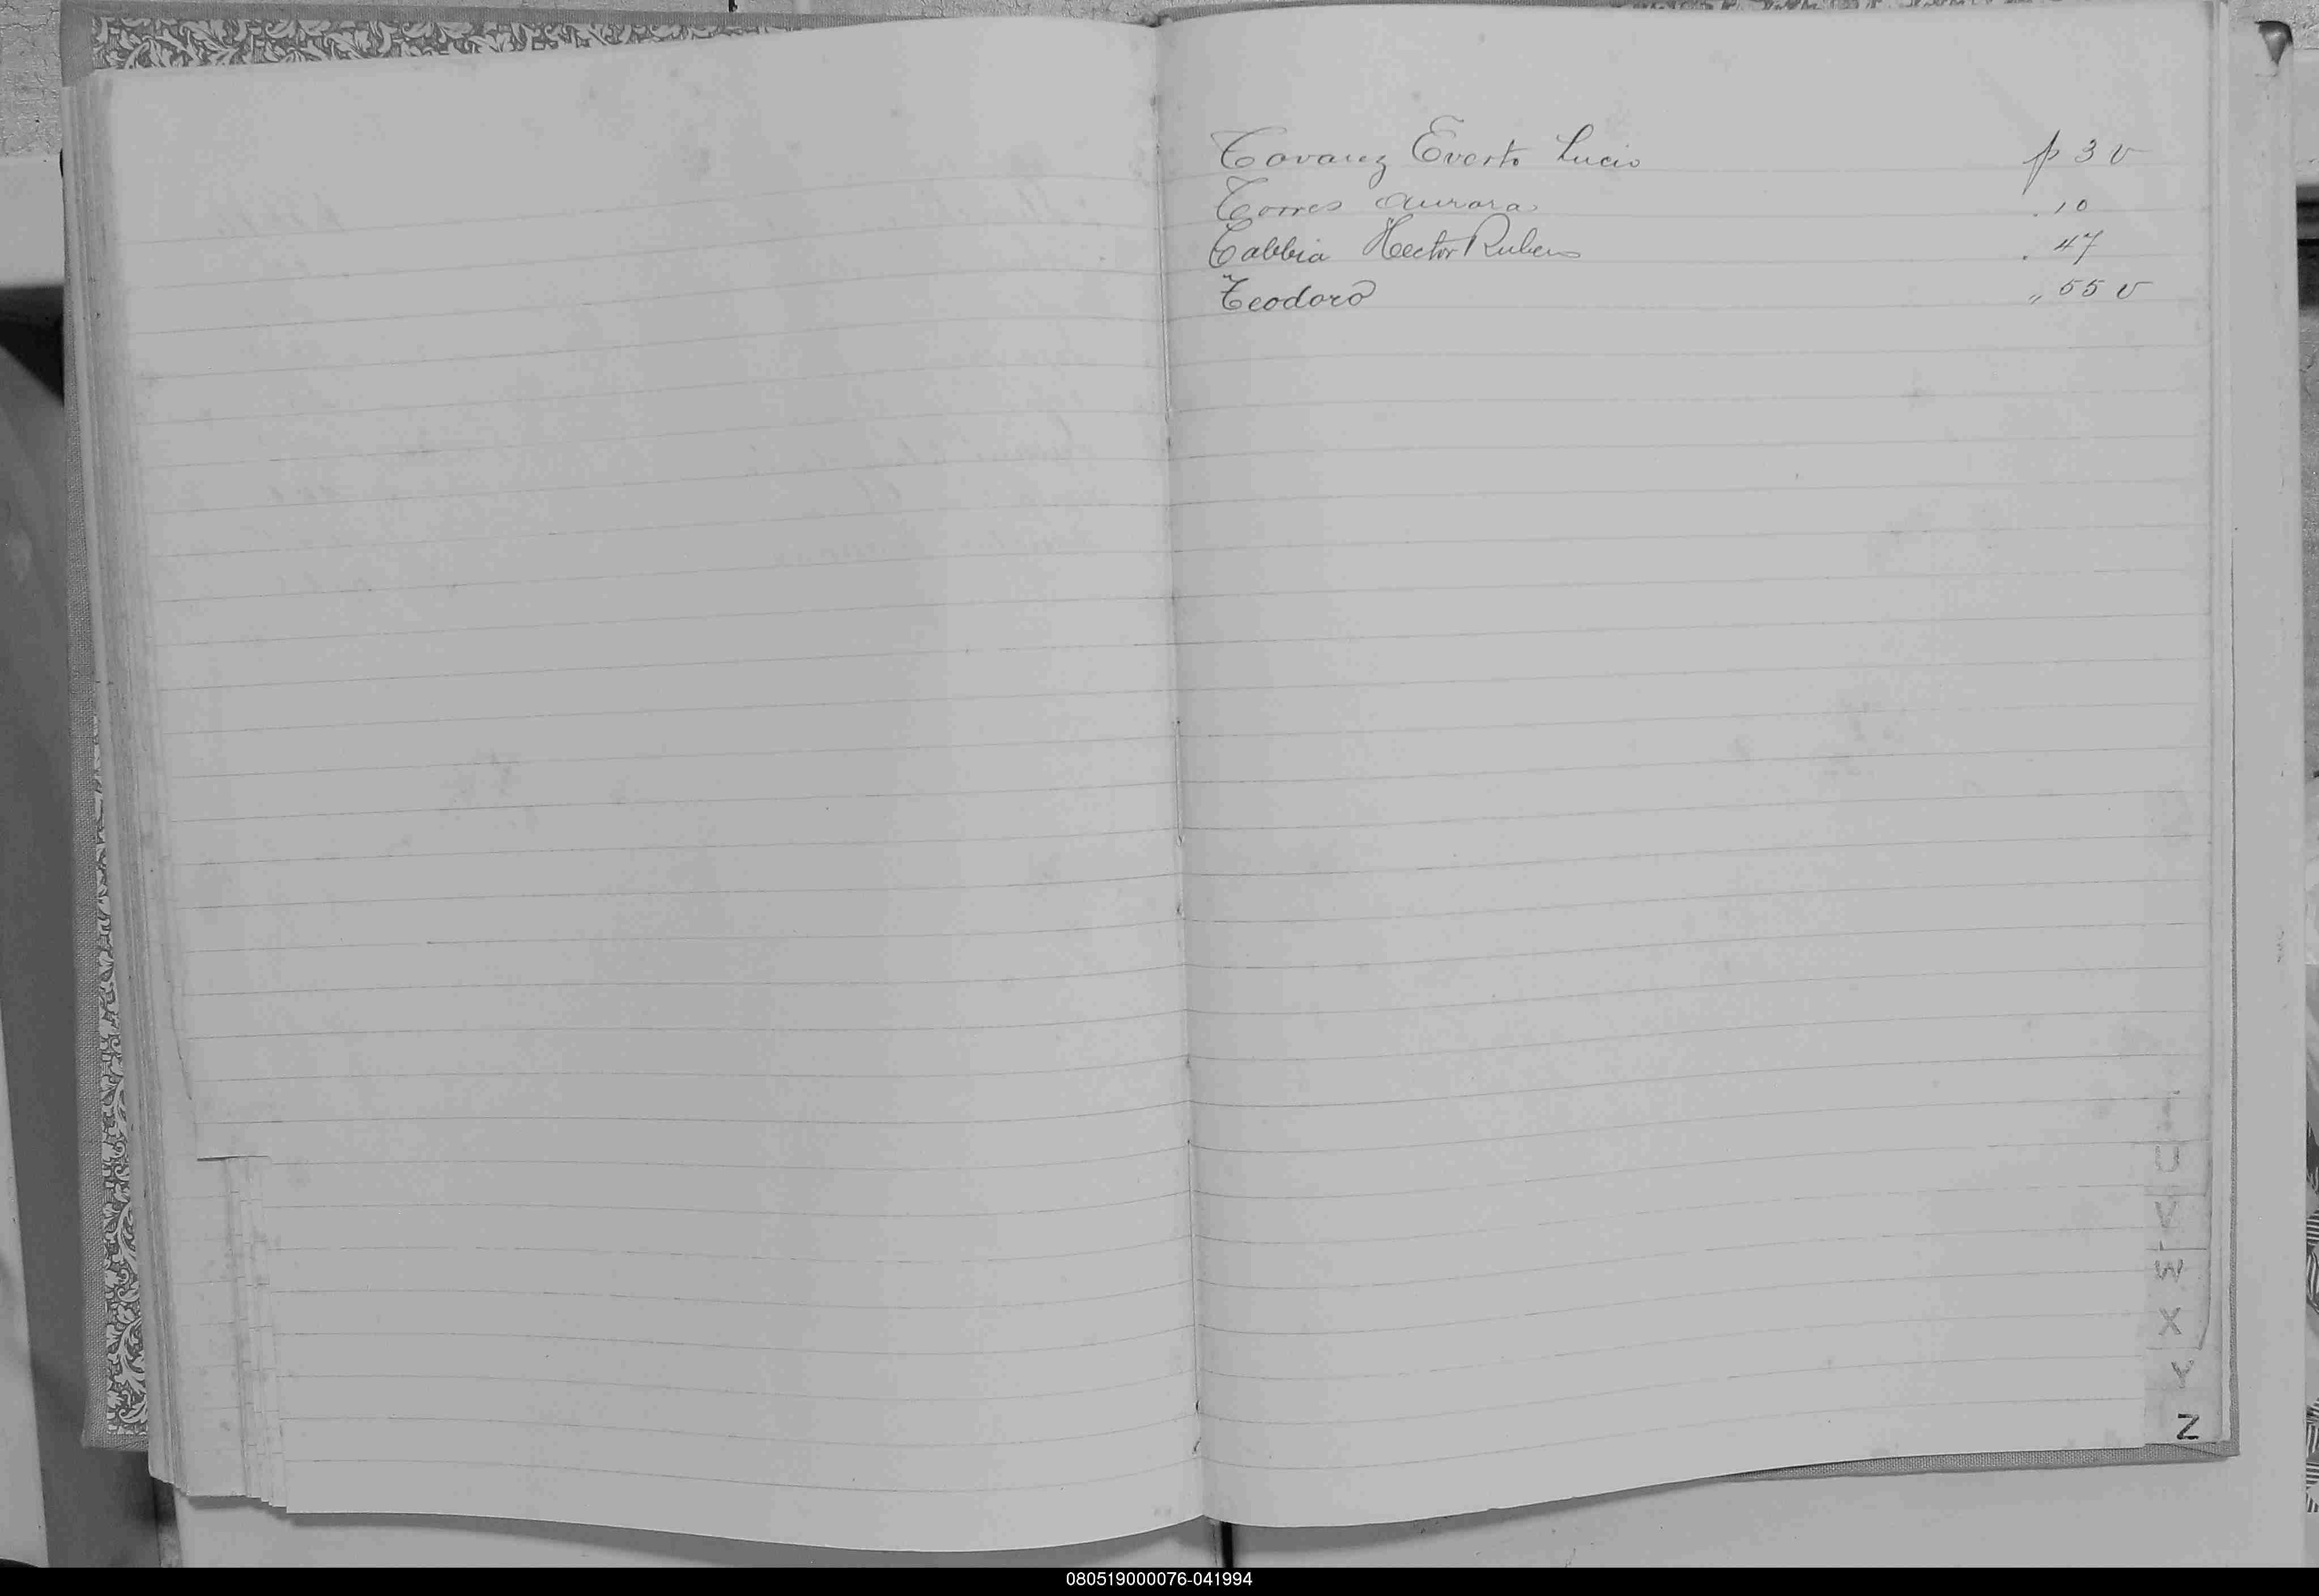 Tavarez Everto Lucio p 3 v
Torres Aurora . 10
Tabbia Hector Ruben . 47
Teodoro „ 55 v
U
V
W
X
Y
Z
080519000076-041994